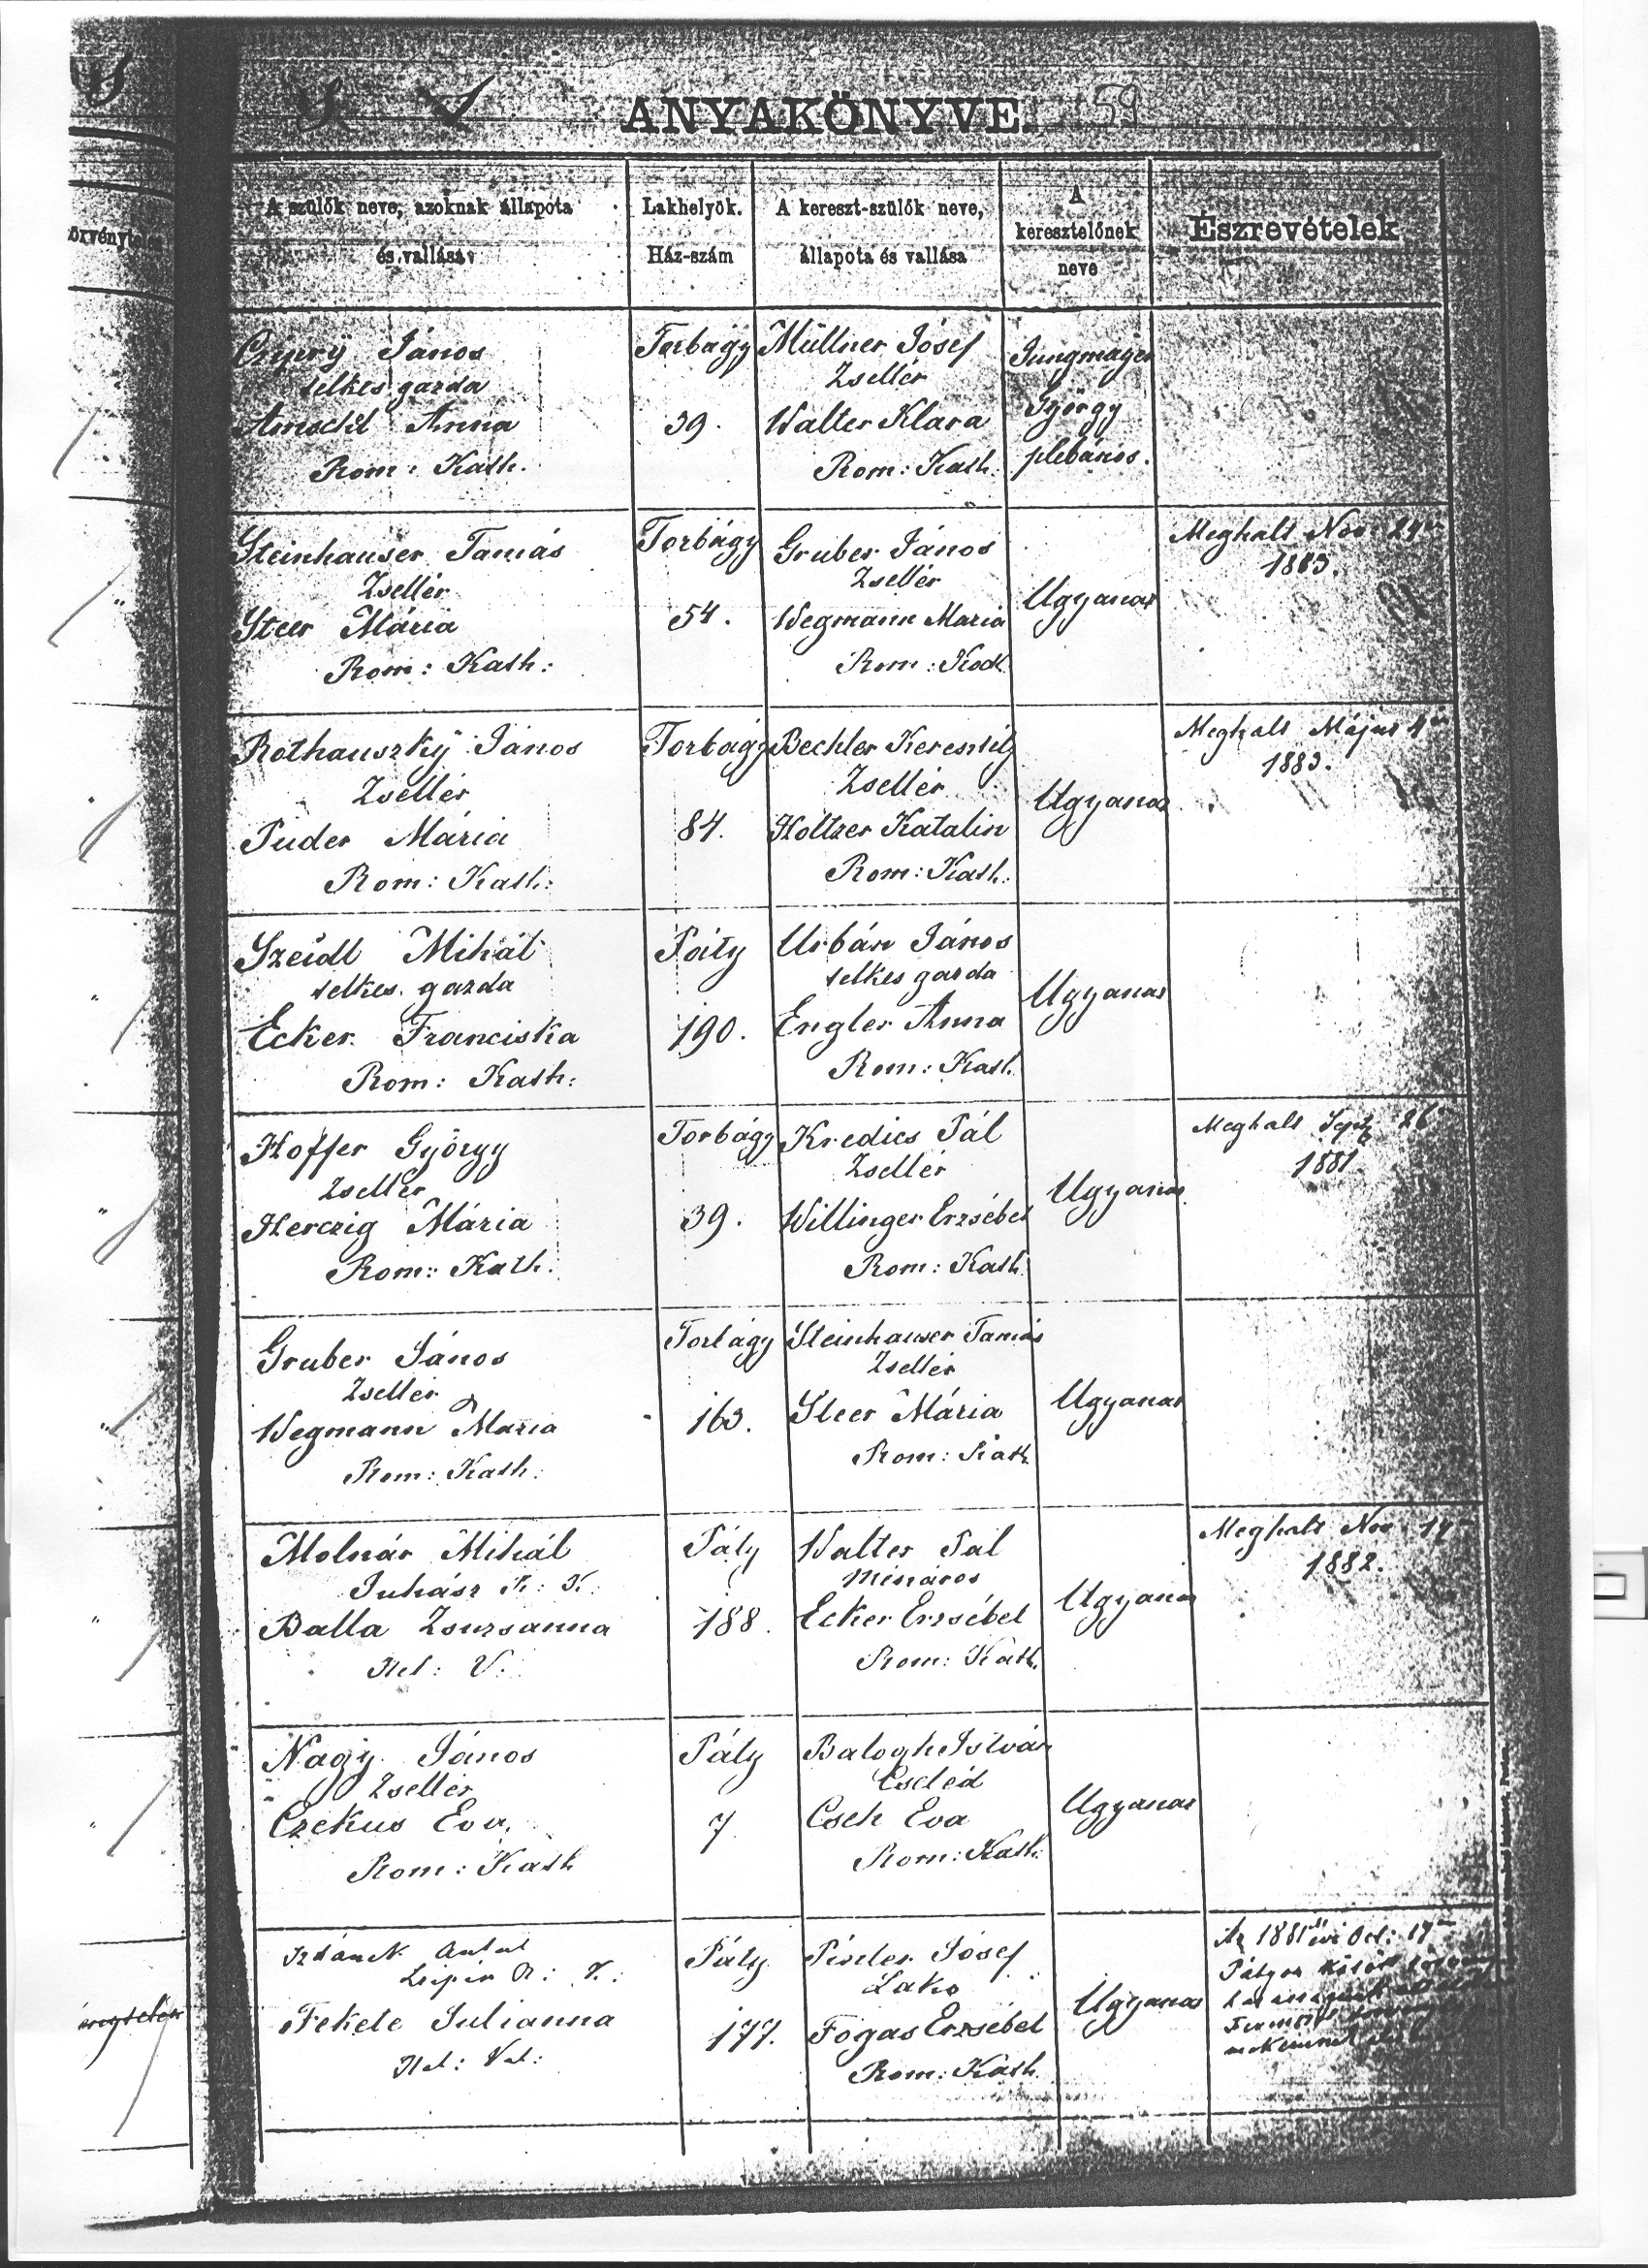 ANYAKÖNYVE. 59
A szülők neve, azoknak állapota
és vallása
Lakhelyök.
Ház-szám
A kereszt-szülők neve,
állapota és vallása
A
keresztelőnek
neve
Észrevételek
János
telkes gazda
Anna
Rom: Kath.
Torbágy
39.
Müllner Jósef
Zsellér
Walter Klara
Rom: Kath:
Jungmayer
György
plébános.
Steinhauser Tamás
Zsellér
Steer Mária
Rom: Kath:
Torbágy
54.
Gruber János
Zsellér
Wegmann Maria
Rom: Kath
Ugyanaz
Meghalt Nov 24
1883.
Rothauszky János
Zsellér
Puder Mária
Rom: Kath:
Torbágy
84.
Bechler Keresztély
Zsellér
Holtzer Katalin
Rom: Kath:
Ugyanaz
Meghalt Május 4
1883.
Szeidl Mihál
telkes gazda
Ecker Franciska
Rom: Kath:
Páty
190.
Urbán János
telkes gazda
Engler Anna
Rom: Kath.
Ugyanaz
Hoffer György
Zsellér
Herczig Mária
Rom: Kath:
Torbágy
39.
Kredics Pál
Zsellér
Willinger Erzsébet
Rom: Kath
Ugyanaz
Meghalt Sept 26
1881.
Gruber János
Zsellér
Wegmann Mária
Rom: Kath:
Torbágy
163.
Steinhauser Tamás
Zsellér
Steer Mária
Rom: Kath
Ugyanaz
Molnár Mihál
Juhász R: K:
Balla Zsuzsanna
Hel: V:
Páty
188.
Walter Pál
Mészáros
Ecker Erzsébet
Rom: Kath.
Ugyanaz
Meghalt Nov 14
1882.
Nagy János
Zsellér
Czekus Eva
Rom: Kath
Páty
7.
Balogh István
Cseléd
Cseh Eva
Rom: Kath:
Ugyanaz
Antal
R: K:
Fekete Julianna
Hel: Val:
Páty
177.
Pinter Jósef
Lakó
Fogas Erzsébet
Rom: Kath.
Ugyanaz
Az 1881 évi Oct: 17